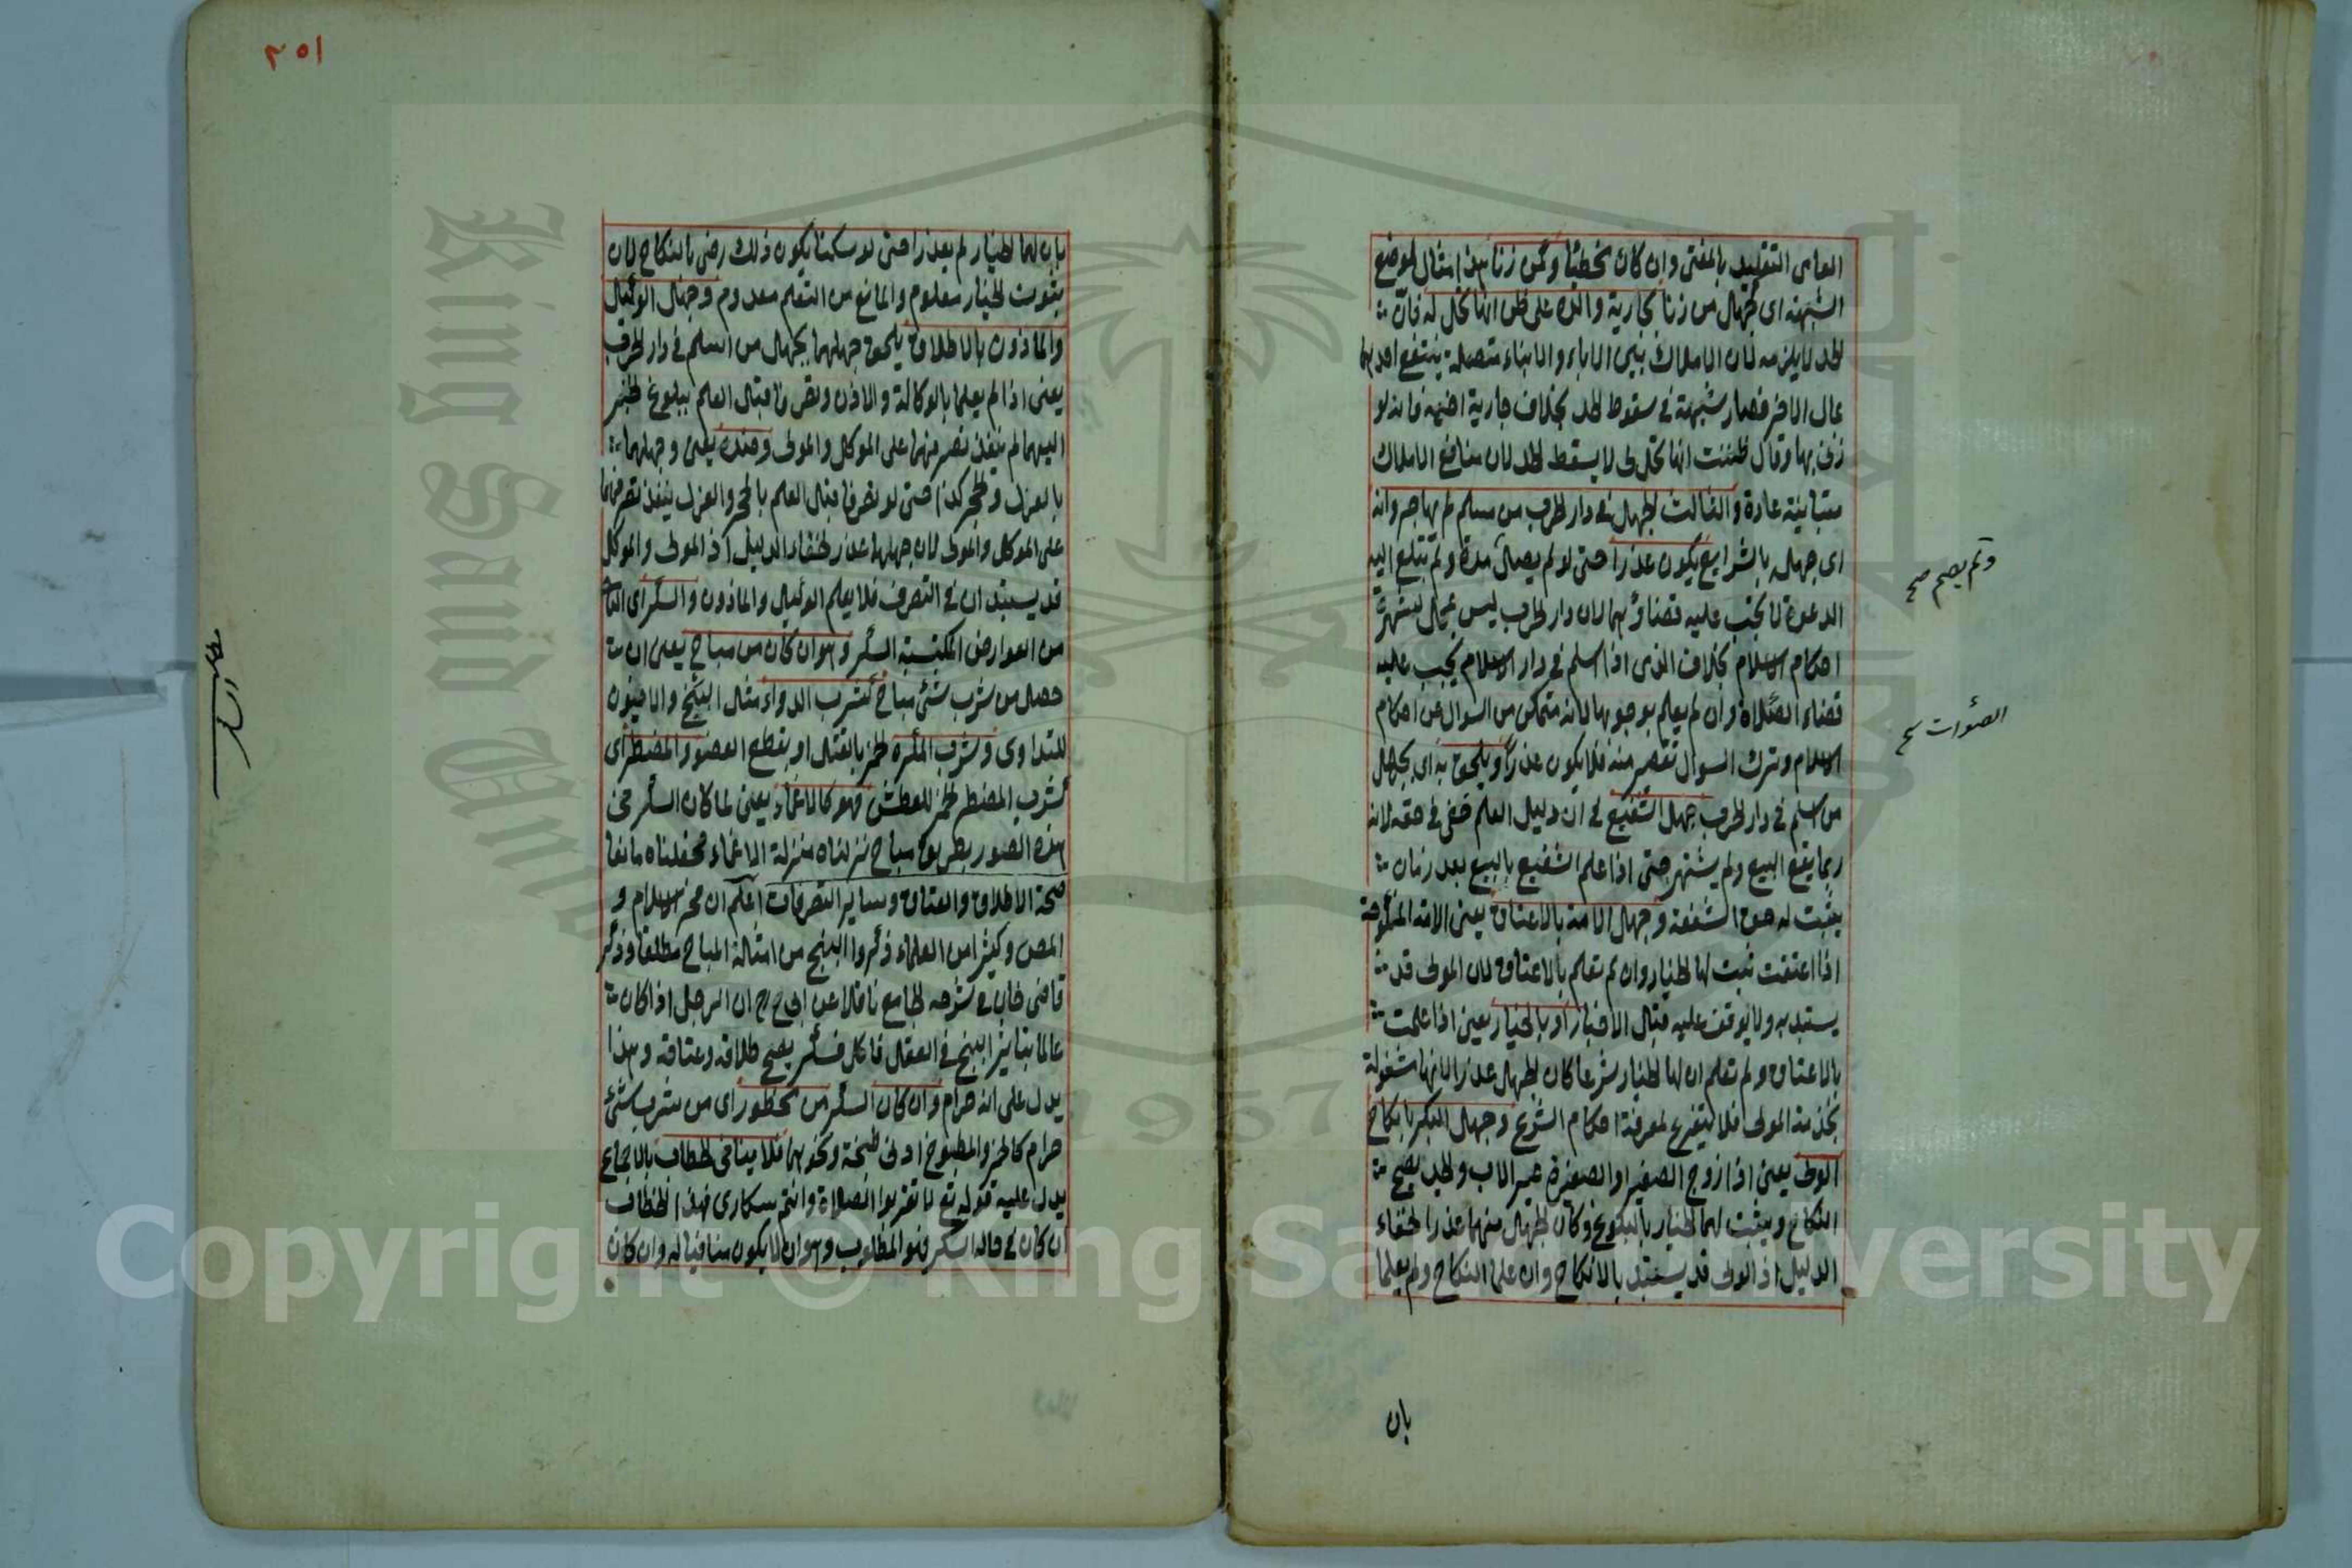 العامى التقليد بالمفتى وان كان مخطئا وكمن زنا هذا مثال لموضع
الشبهة اى كجهل من زنا بجارية والده على ظن انها تحل له فان
الحد لا يلزمه لان الاملاك بين الاباء والابناء متصلة ينتفع احدهما
بمال الاخر فصار شبهة فى سقوط الحد بخلاف جارية اخيه فانه لو
زنى بها وقال ظننت انها تحل لى لا يسقط الحد لان منافع الاملاك
متباينة عادة والثالث الجهل فى دار الحرب من مسلم لم يهاجر وانه
اى جهله بالشرايع يكون عذرا حتى لو لم يصل مدة ولم تبلغ اليه
ولم يصم صح
الدعوة لا يجب عليه قضاؤهما لان دار الحرب ليس بمحل لشهرة
احكام الاسلام بخلاف الذمى اذا اسلم فى دار الاسلام يجب عليه
قضاء الصلاة وان لم يعلم بوجوبها لانه متمكن من السوال عن احكام
الصلوات صح
الاسلام وترك السوال تقصير منه فلا يكون عذرا ويلحق به اى بجهل
من اسلم فى دار الحرب جهل الشفيع فى ان دليل العلم خفى فى حقه لانه
ربما يقع البيع ولم يشتهر حتى اذا علم الشفيع بالبيع بعد زمان
يثبت له حق الشفعة وجهل الامة بالاعتاق يعنى الامة المنكوحة
اذا اعتقت ثبت لها الخيار وان لم تعلم بالاعتاق لان المولى قد
يستبد به ولا يوقف عليه قبل الاخبار او بالخيار يعنى اذا علمت
بالاعتاق ولم تعلم ان لها الخيار شرعا كان الجهل عذرا لانها مشغولة
بخدمة المولى فلا يتفرغ لمعرفة احكام الشرع وجهل البكر بانكاح
الولى يعنى اذا زوج الصغير او الصغيرة غير الاب والجد يصح
النكاح ويثبت لهما الخيار بالبلوغ وكان الجهل منهما عذرا لخفاء
الدليل اذ الولى قد يستبد بالانكاح وان علما النكاح ولم يعلما
بان
٢٥١
بان لهما الخيار لم يعذرا حتى لو سكتا يكون ذلك رضى بالنكاح لان
ثبوت الخيار معلوم والمانع من التعلم معدوم وجهل الوكيل
والماذون بالاطلاق يلحق جهلهما بجهل من اسلم فى دار الحرب
يعنى اذا لم يعلما بالوكالة والاذن وتصرفا قبل العلم ببلوغ الخبر
اليهما لم ينفذ تصرفهما على الموكل والمولى وضده يعنى وجهلهما
بالعزل والحجر كذا حتى لو تصرفا قبل العلم بالحجر والعزل ينفذ تصرفهما
على الموكل والمولى لان جهلهما عذر لخفاء الدليل اذ المولى والموكل
قد يستبدان فى التصرف فلا يعلم الوكيل والماذون والسكر اى
من العوارض المكتسبة السكر وهو ان كان من مباح يعنى ان
حصل من شرب شئ مباح كشرب الدواء مثل البنج والافيون
للتداوى وشرب المكره الخمر بالقتل او بقطع العضو والمضطر اى
كشرب المضطر الخمر للعطش فهو كالاغماء يعنى لما كان السكر فى
هذه الصور بطريق مباح نزلناه منزلة الاغماء فجعلناه مانعا
صحة الاطلاق والعتاق وساير التصرفات اعلم ان فخر الاسلام و
المص وكثيرا من العلماء ذكروا البنج من امثلة المباح مطلقا وذكر
قاضى خان فى شرحه للجامع ناقلا عن ابى ح رح ان الرجل اذا كان
عالما بتاثير البنج فى العقل فاكل فسكر يصح طلاقه وعتاقه وهذا
يدل على انه حرام وان كان السكر من محظور اى من شرب شئ
حرام كالخمر والمطبوخ ادنى طبخة ونحوهما فلا ينافى الخطاب بالاجماع
يدل عليه قوله تع لا تقربوا الصلاة وانتم سكارى فهذا الخطاب
ان كان فى حالة السكر فهو المطلوب وهو ان لا يكون منافيا له وان كان